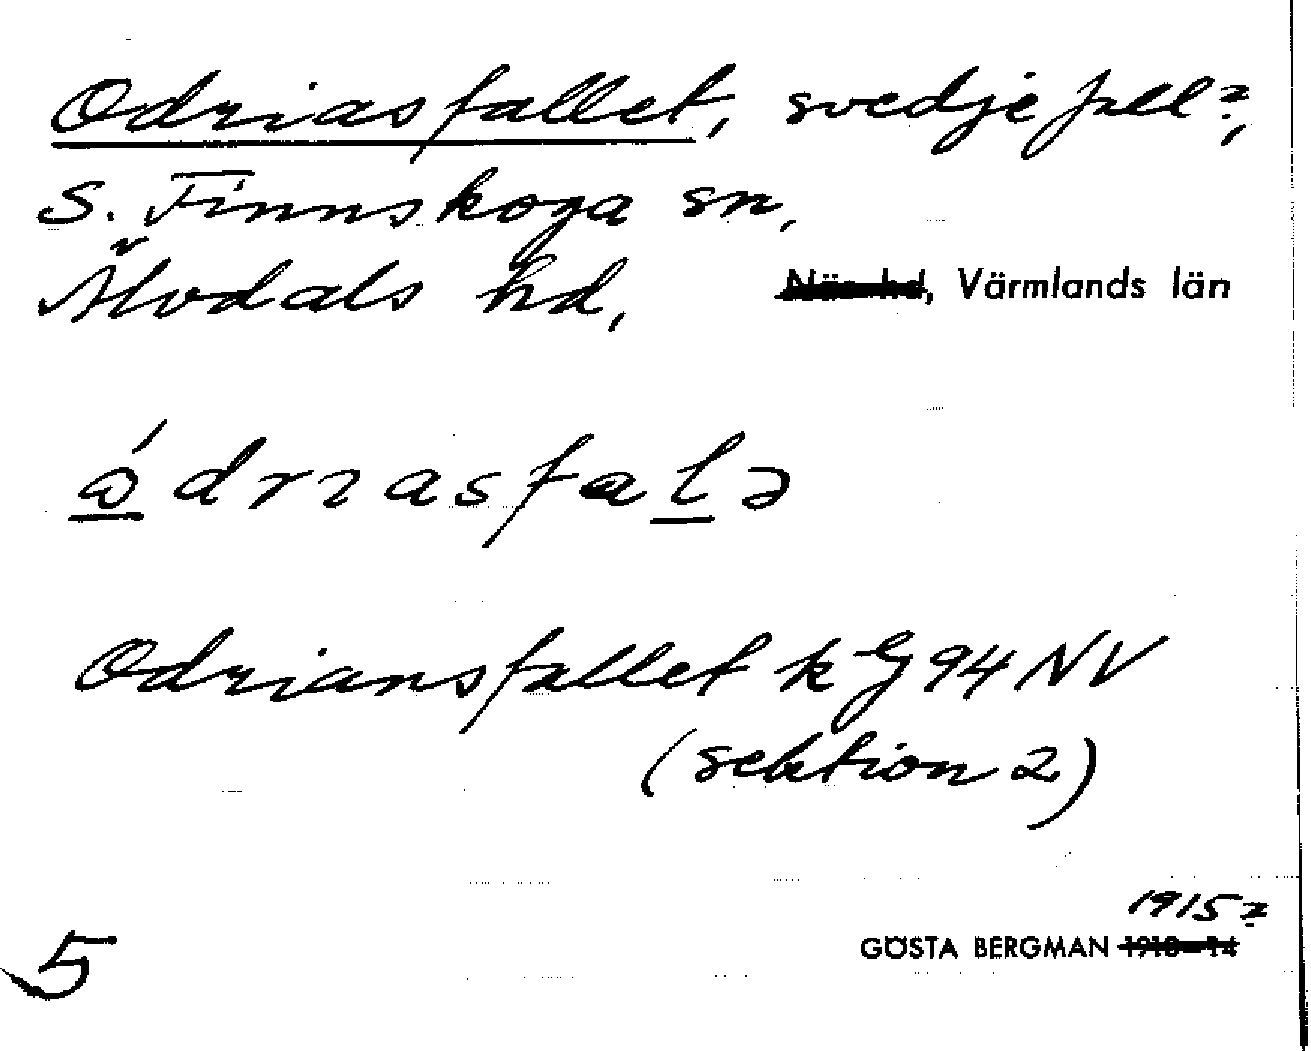 Odriasfallet, svedjefall?,
S. Finnskoga sn,
Älvdals hd, Näs hd, Värmlands län
ǻdrɿasfalə
Odriansfallet k G 94 NV
(sektion 2)
1915?
GÖSTA BERGMAN 1910–14
5